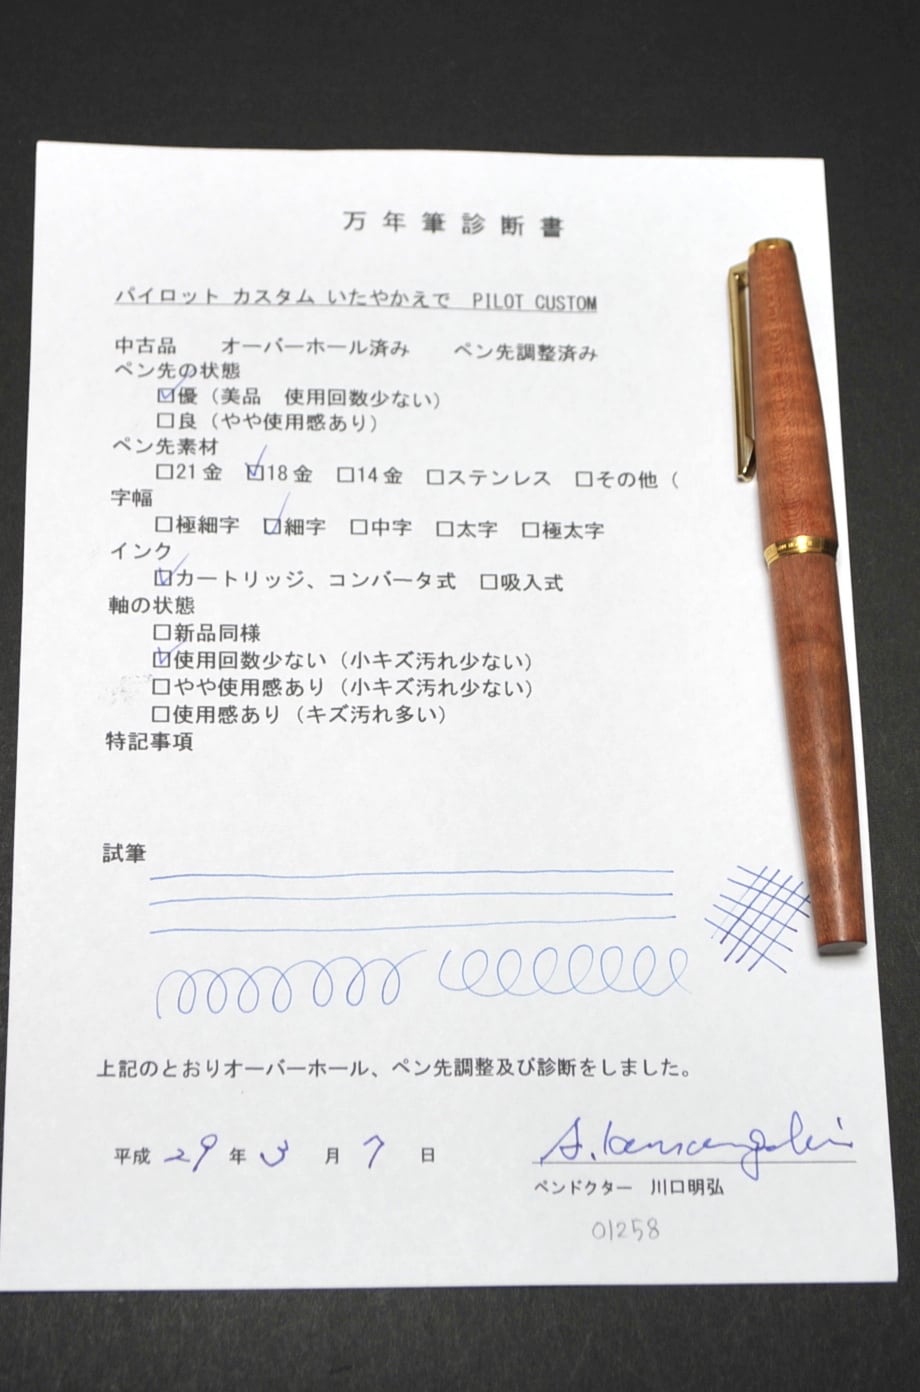 万年筆診断書
パイロット カスタム いたやかえで PILOT CUSTOM
中古品 オーバーホール済み ペン先調整済み
ペン先の状態
☑優（美品 使用回数少ない）
□良（やや使用感あり）
ペン先素材
□21金 ☑18金 □14金 □ステンレス □その他（
字幅
□極細字 ☑細字 □中字 □太字 □極太字
インク
☑カートリッジ、コンバータ式 □吸入式
軸の状態
□新品同様
☑使用回数少ない（小キズ汚れ少ない）
□やや使用感あり（小キズ汚れ少ない）
□使用感あり（キズ汚れ多い）
特記事項
試筆
上記のとおりオーバーホール、ペン先調整及び診断をしました。
平成 29 年 3 月 7 日
ペンドクター 川口明弘
01258